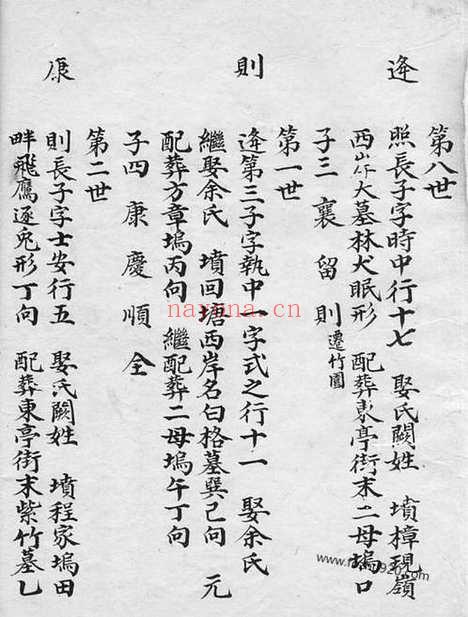 第八世
逄
照長子字時中行十七 娶氏闕姓 墳樟現嶺
西山下大墓林犬眠形 配葬東亭街末二母塢口
子三 襄 留 則遷竹園
第一世
則
逄第三子字執中一字式之行十一 娶余氏
繼娶余氏 墳回塘西岸名曰格墓巽己向 元
配葬方章塢丙向 繼配葬二母塢午丁向
子四 康 慶 順 全
第二世
康
則長子字士安行五 娶氏闕姓 墳程家塢田
畔飛鷹逐兎形丁向 配葬東亭街末紫竹墓乚
nayona.cn